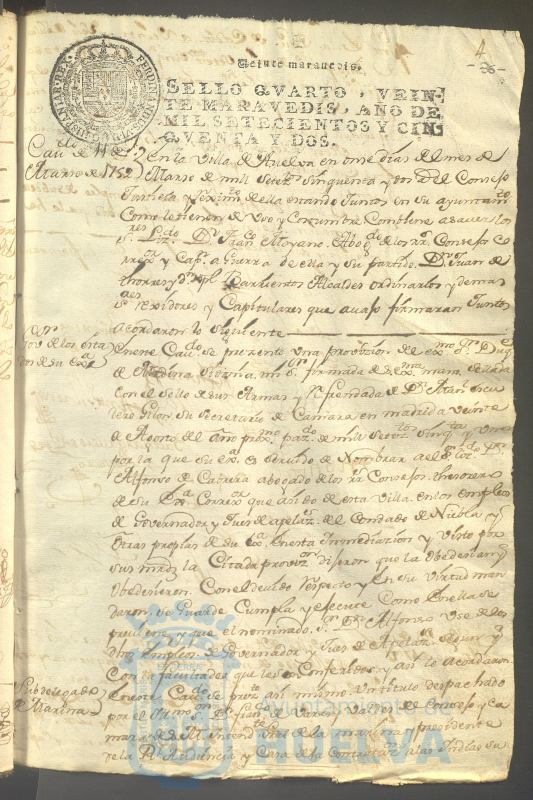 4
Veinte maravedis.
-36-
SELLO QVARTO, VEIN-
TE MARAVEDIS, AÑO DE
MIL SETECIENTOS Y CIN
QVENTA Y DOS.
Cau.do 11 de
Marzo de 1752
En la Villa de Huelva en onse dias del mes de
Marzo de mill setez.tos sinquenta y dos a.s el Consejo
Justicia y Reximi.to de ella estando Juntos en su ayuntam.to
Como lo tienen de Uso y Costumbre Combiene a saver los
S.res Liz.do D.n Fran.co Moyano Abog.do de los R.s Consejos Co
rrex.or y Cap.n a Guerra de ella y su partido D.n Juan de
thorres y D.n Barrientos Alcaldes ordinarios y demas
S.res rexidores y Capitulares que avajo firmaran Juntos
acordaron lo siguiente
Gov.or de los esta
dos de su Ex.a
En este Cau.do se presento una provission de el ex.mo S.r Duq.e
de Medina Sidonia mi S.r firmada de su ex.ma mano sellada
con el sello de sus Armas y Refrendada de D.n
su Secretario de Camara en madrid veinte
de Agosto del año prox.mo paz.do de mil setez.tos sinq.ta y uno
por la que su ex.a es servido de Nombrar al S.r Liz.do D.n
Alfonso de Cabrera abogado de los R.s Consejos thesorero
de su Ex.a Correx.or que a sido de esta villa en los empleos
de Governador y Jues de apelaz.s del Condado de Niebla y
otras propias de su ex.a en esta Immediazion y visto por
sus mrds la Citada provizi.on dijeron que la Obedesian y
Obedesieron. Con el devido Respecto y en su virtud man
daron se Guarde Cumpla y efecute Como en ella se
previene y que el nominado S.r D.n Alfonso use de los
dhos empleos de Governador y Jues de Apelaz.s segun y
Con las facultades que les son Conferidos y asi lo acordaron
Subdelegado
de Marina
En este Cau.do se prez.to asi mismo un titulo despachado
por el Yllmo S.or D.n Fran.co de Varas y Valdes del Consejo y Ca
mara de S. M. Intend.te Gral de la marina y presidente
de la R.l Audiencia y Casa de la Contrataz.on a las Indias su
Ayuntamiento de
HUELVA